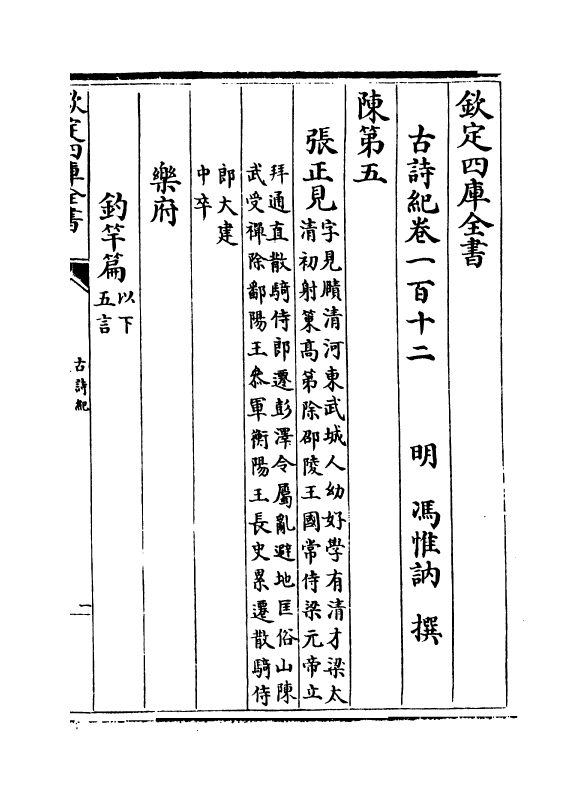 欽定四庫全書
古詩紀卷一百十二　明　馮惟訥　撰
陳第五
張正見字見賾清河東武城人幼好學有清才梁太
清初射策髙第除邵陵王國常侍梁元帝立
拜通直散騎侍郎遷彭澤令屬亂避地匡俗山陳
武受禪除鄱陽王叅軍衡陽王長史累遷散騎侍
郎大建
中卒
樂府
釣竿篇以下
五言
欽定四庫全書
古詩紀
一